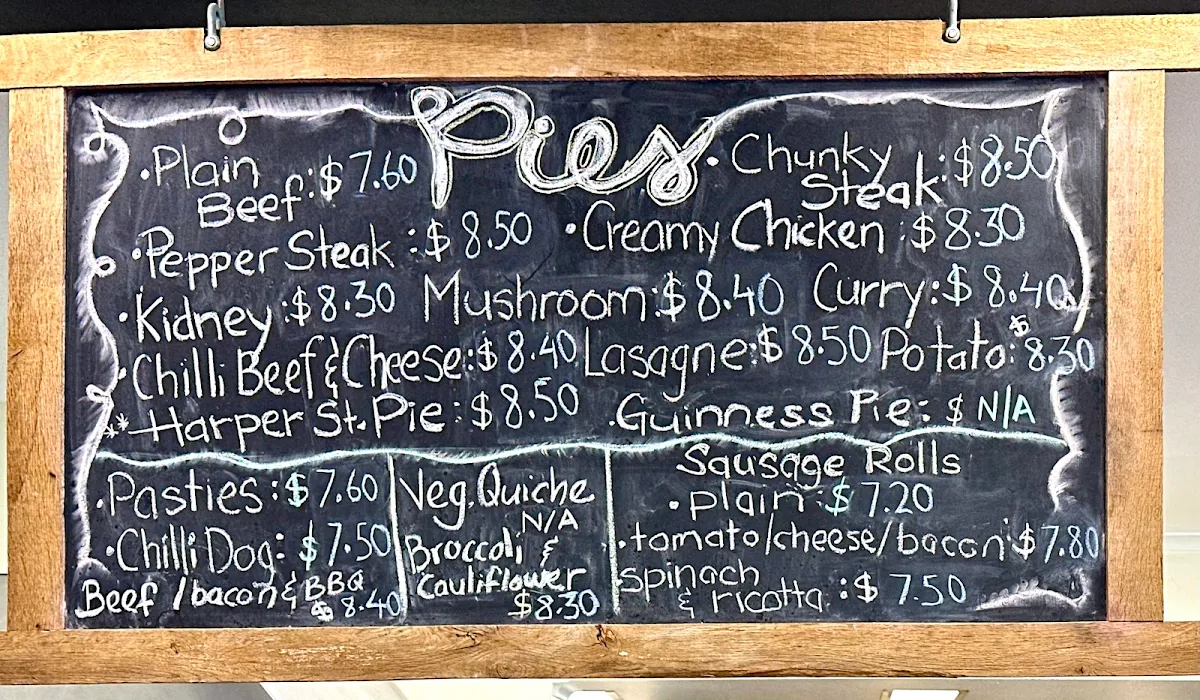 Pies
•Plain
Beef:$7.60
•Chunky
Steak:$8.50
•Pepper Steak:$8.50 •Creamy Chicken:$8.30
•Kidney:$8.30 Mushroom:$8.40 Curry:$8.40
•Chilli Beef & Cheese:$8.40 Lasagne:$8.50 Potato:$8.30
**Harper St. Pie:$8.50 •Guinness Pie:$N/A
•Pasties:$7.60
•Chilli Dog:$7.50
Beef/bacon & BBQ
$8.40
Veg. Quiche
N/A
Broccoli &
Cauliflower
$8.30
Sausage Rolls
•plain:$7.20
•tomato/cheese/bacon:$7.80
spinach
& ricotta:$7.50